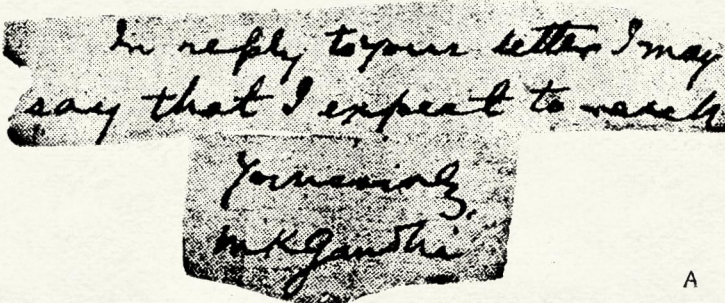 In reply to your letter I may
say that I expect to reach
Yours sincerely,
MKGandhi
A